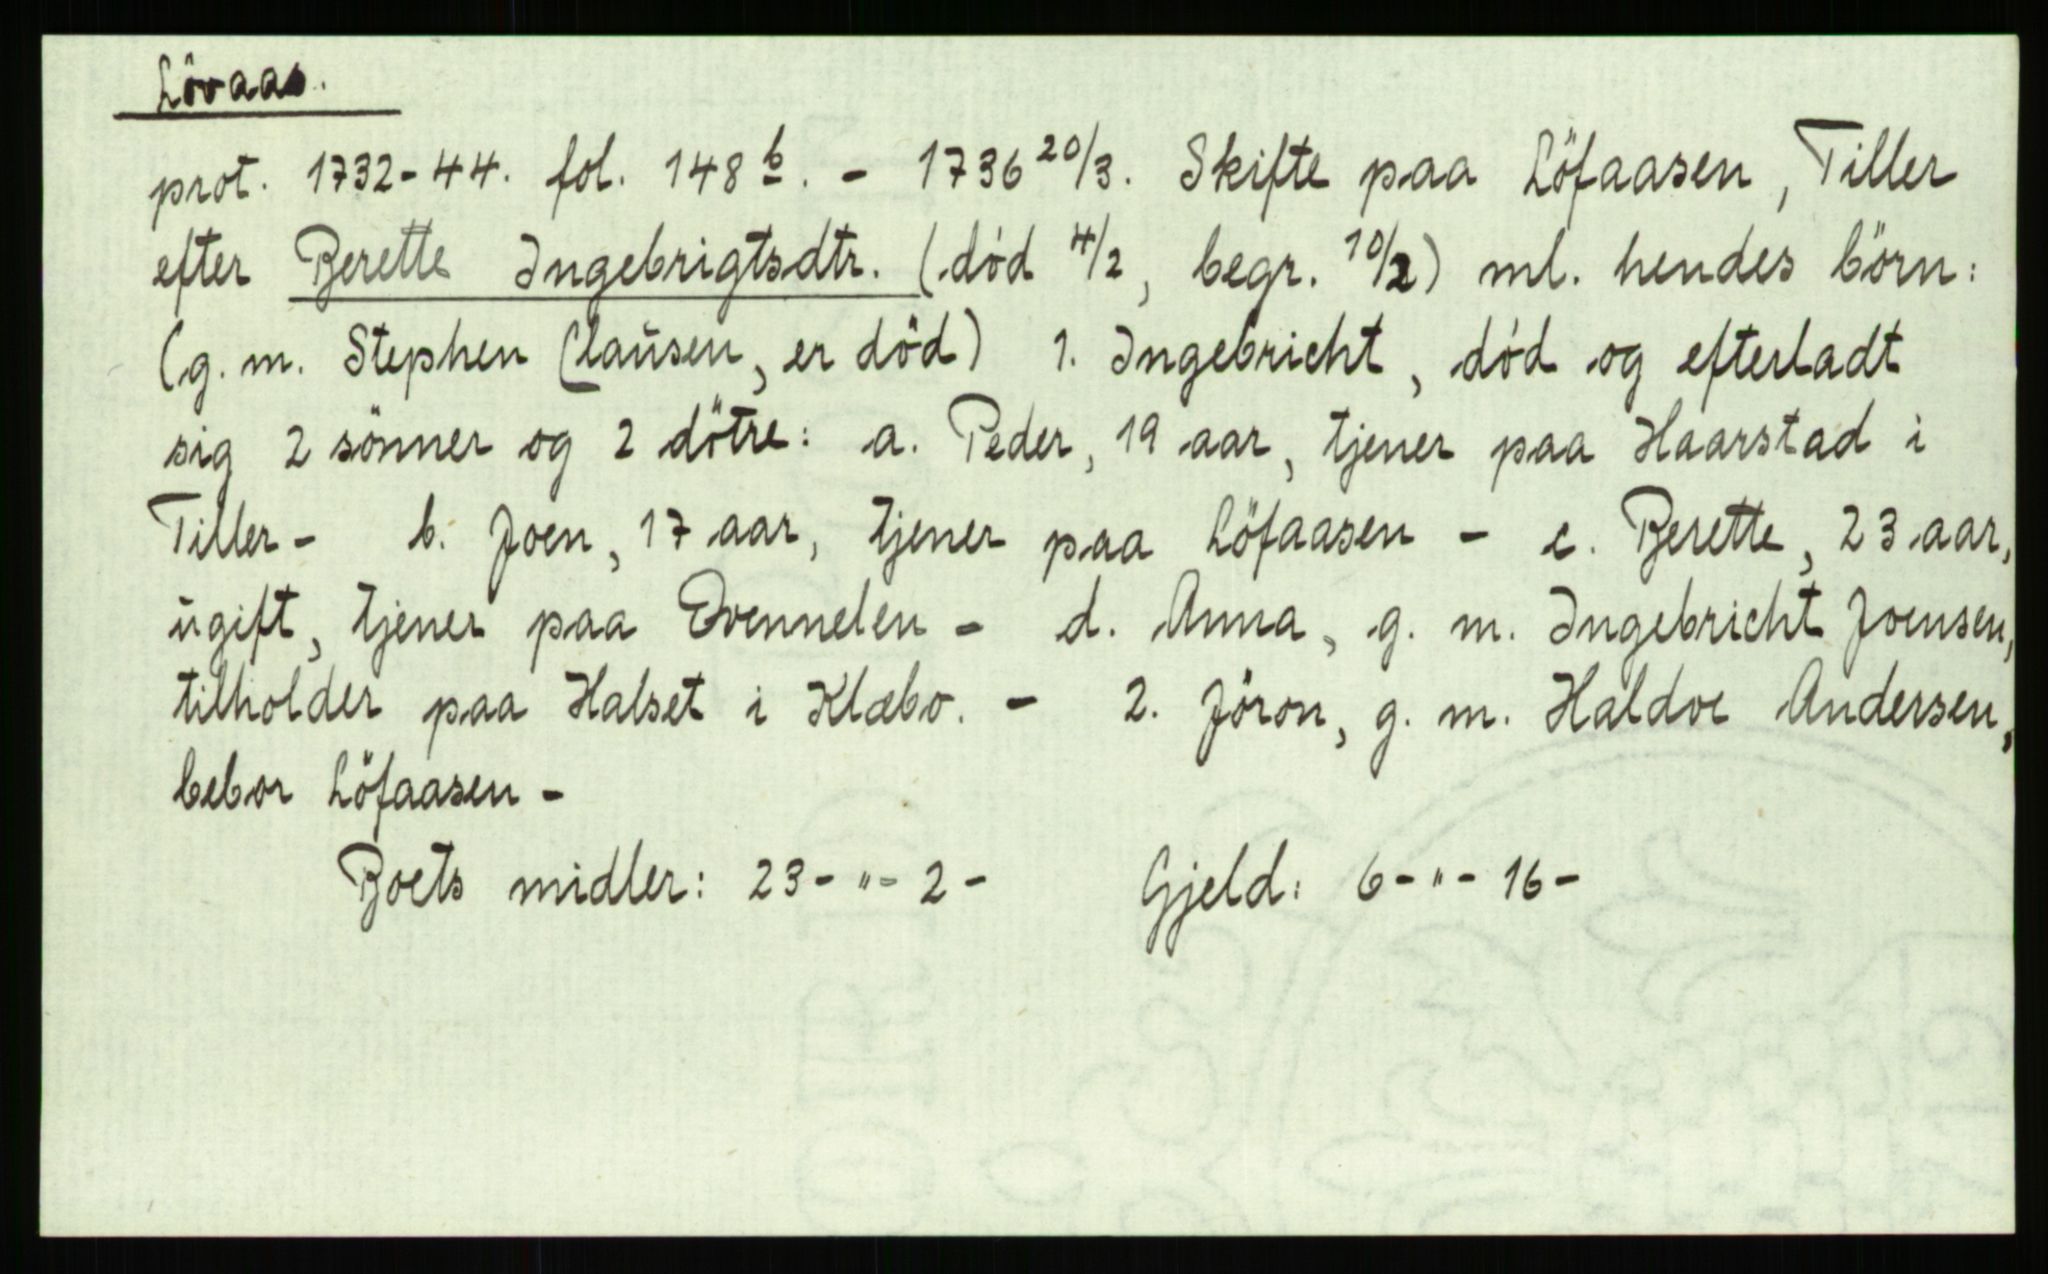 Lövaas.
prot. 1732-44. fol. 148 b. - 1736 20/3. Skifte paa Löfaasen, Tiller
efter Berette Ingebrigtsdtr. (död 4/2, begr. 10/2) ml. hendes börn:
(g. m. Stephen Clausen, er död) 1. Ingebricht, död og efterladt
sig 2 sönner og 2 dötre: a. Peder, 19 aar, tjener paa Haarstad i
Tiller - b. Joen, 17 aar, tjener paa Löfaasen - c. Berette, 23 aar,
ugift, tjener paa - d. Anna, g. m. Ingebricht Joensen,
tilholder paa Halset i Klæbo. - 2. Jöron, g. m. Haldoe Andersen,
bebor Löfaasen -
Boets midler: 23 - " - 2 - Gjeld: 6 - " - 16 -